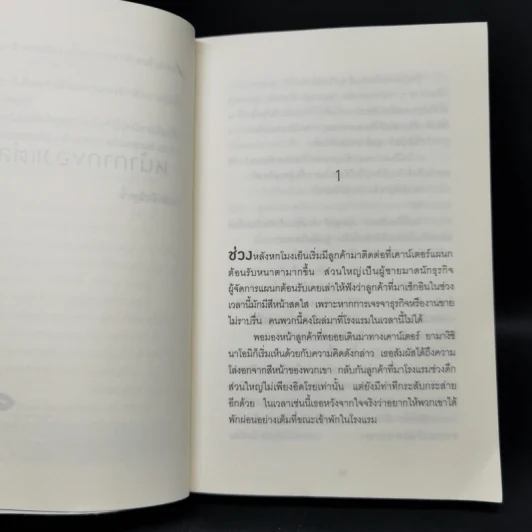 1
ช่วงหลังหกโมงเย็นเริ่มมีลูกค้ามาติดต่อที่เคาน์เตอร์แผนก
ต้อนรับหนาตามากขึ้น ส่วนใหญ่เป็นผู้ชายมาดนักธุรกิจ
ผู้จัดการแผนกต้อนรับเคยเล่าให้ฟังว่าลูกค้าที่มาเช็กอินในช่วง
เวลานี้มักมีสีหน้าสดใส เพราะหากการเจรจาธุรกิจหรืองานขาย
ไม่ราบรื่น คนพวกนี้คงโผล่มาที่โรงแรมในเวลานี้ไม่ได้
พอมองหน้าลูกค้าที่ทยอยเดินมาทางเคาน์เตอร์ ยามางิชิ
นาโอมิก็เริ่มเห็นด้วยกับความคิดดังกล่าว เธอสัมผัสได้ถึงความ
โล่งอกจากสีหน้าของพวกเขา กลับกันลูกค้าที่มาโรงแรมช่วงดึก
ส่วนใหญ่ไม่เพียงอิดโรยเท่านั้น แต่ยังมีท่าทีกระสับกระส่าย
อีกด้วย ในเวลาเช่นนี้เธอหวังจากใจจริงว่าอยากให้พวกเขาได้
พักผ่อนอย่างเต็มที่ขณะเข้าพักในโรงแรม